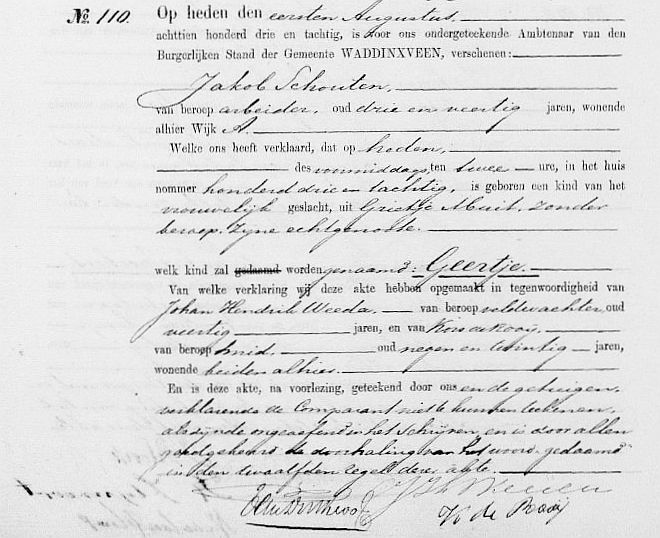 No 110. Op heden den eersten Augustus,
achttien honderd drie en tachtig, is voor ons ondergeteekende Ambtenaar van den
Burgerlijken Stand der Gemeente WADDINXVEEN, verschenen:
Jakob Schouten,
van beroep arbeider, oud drie en veertig jaren, wonende
alhier Wijk A.
Welke ons heeft verklaard, dat op heden,
des voormiddags, ten twee ure, in het huis
nommer honderd drie en tachtig, is geboren een kind van het
vrouwelijk geslacht, uit Grietje Muit, zonder
beroep, zijne echtgenoote.
welk kind zal gedaamd worden genaamd: Geertje.
Van welke verklaring wij deze akte hebben opgemaakt in tegenwoordigheid van
Johan Hendrik Weeda, van beroep veldwachter, oud
veertig jaren, en van
van beroep smid, oud negen en twintig jaren,
wonende beiden alhier.
En is deze akte, na voorlezing, geteekend door ons en de getuigen,
verklarende de Comparant niet te kunnen teekenen,
als zijnde ongeoefend in het schrijven, en is door allen
goedgekeurd de doorhaling van het woord "gedaamd"
in den twaalfden regel dezer akte.
K de Rooij